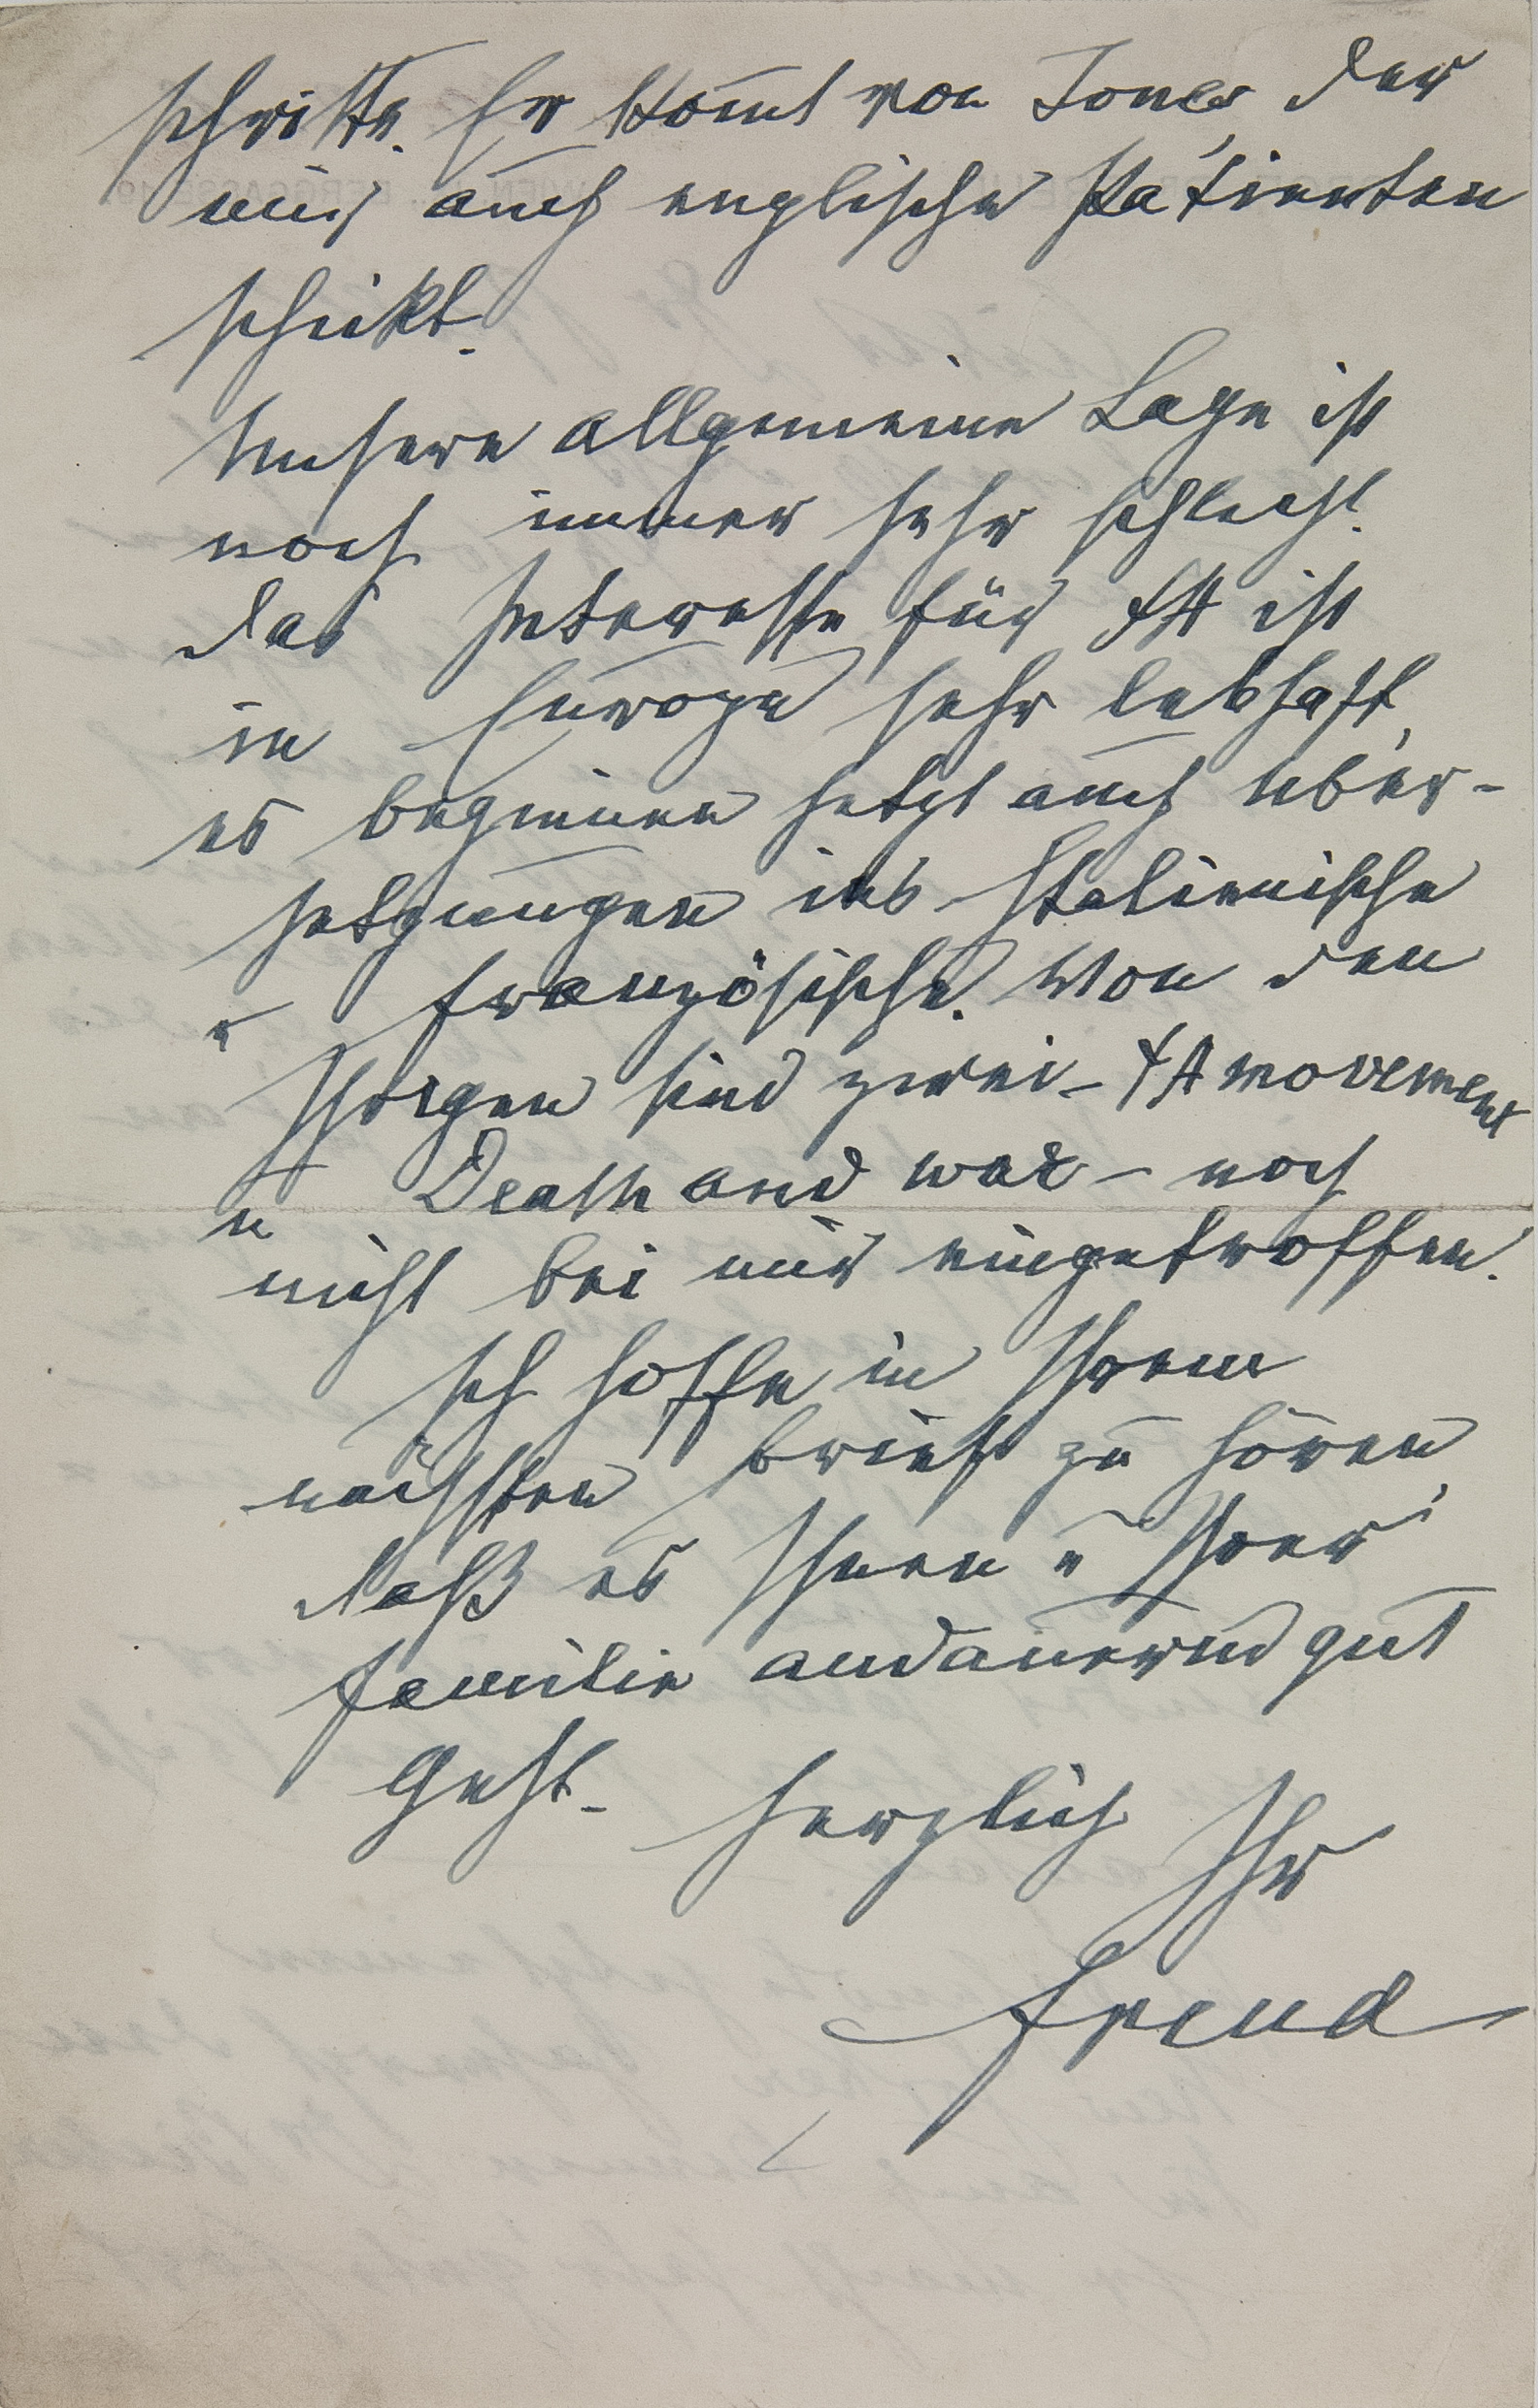 schritte. Er kom̄t von Jones der
mir auch englische Patienten
schickt.
Unsere allgemeine Lage ist
noch immer sehr schlecht.
Das Interesse für ΨA ist
in Europa sehr lebhaft,
es beginnen jetzt auch Über-
setzungen ins Italienische
u Französische. Von den
Ihrigen sind zwei – ΨA movement
u Death and war – noch
nicht bei mir eingetroffen.
Ich hoffe in Ihrem
nächsten Brief zu hören,
daß es Ihnen u Ihrer
Familie andauernd gut
geht.
Herzlich Ihr
Freud